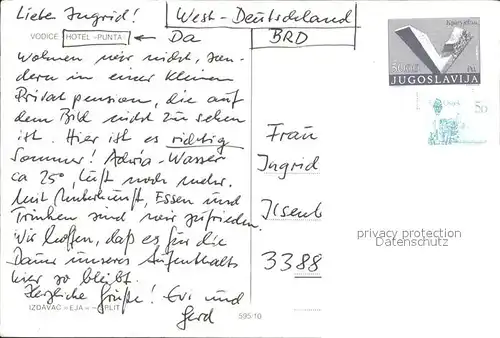 Liebe Ingrid!
West-Deutschland
BRD
VODICE HOTEL "PUNTA" ← Da
wohnen wir nicht, son-
dern in einer kleinen
Privatpension, die auf
dem Bild nicht zu sehen
ist. Hier ist es richtig
Sommer! Adria-Wasser
ca 25°, Luft noch mehr.
Mit Unterkunft, Essen und
Trinken sind wir zufrieden.
Wir hoffen, daß es für die
Dauer unseres Aufenthalts
hier so bleibt.
Herzliche Grüße! Evi und
Gerd
IZDAVAČ - EJA - SPLIT
595/10
JUGOSLAVIJA
50
Frau
Ingrid
Ilsenb
3388
privacy protection
Datenschutz